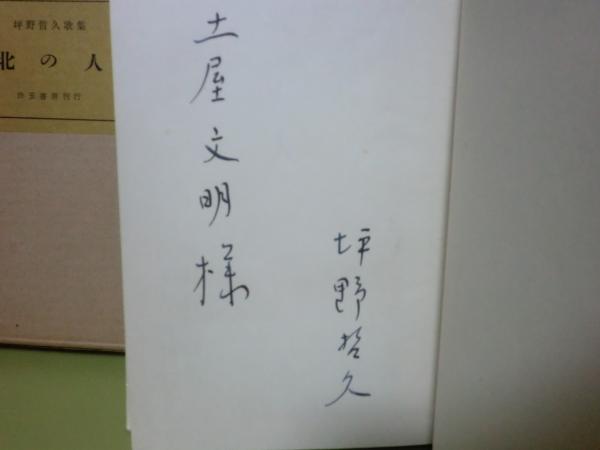 土屋文明様
坪野哲久
坪野哲久歌集
北の人
白玉書房刊行